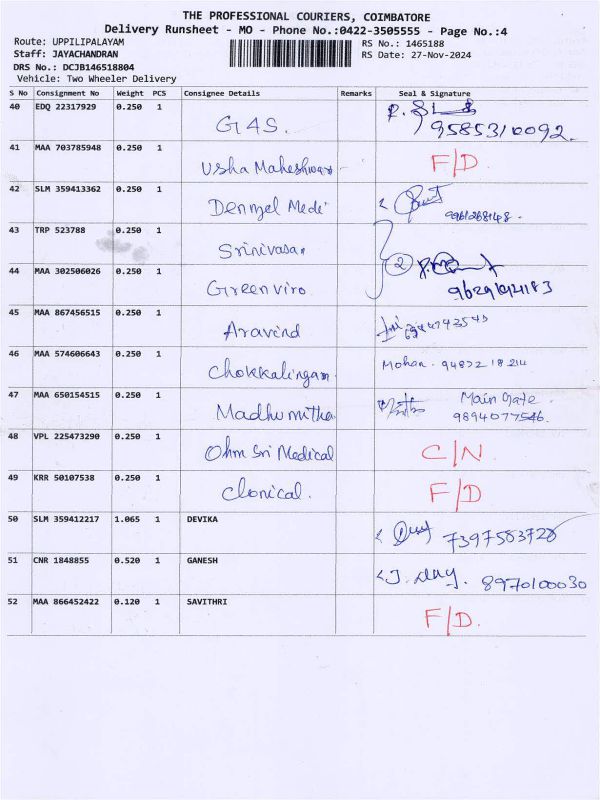 THE PROFESSIONAL COURIERS, COIMBATORE
Delivery Runsheet - MO - Phone No.:0422-3505555 - Page No.:4
Route: UPPILIPALAYAM RS No.: 1465188
Staff: JAYACHANDRAN RS Date: 27-Nov-2024
DRS No.: DCJB146518804
Vehicle: Two Wheeler Delivery
S No Consignment No Weight PCS Consignee Details Remarks Seal & Signature
40 EDQ 22317929 0.250 1
G4S. 9585310092.
41 MAA 703785948 0.250 1
Usha Maheshwar F/D
42 SLM 359413362 0.250 1
Denzel Medi
43 TRP 523788 0.250 1
Srinivasan
44 MAA 302506026 0.250 1 2
Greenviro.
45 MAA 867456515 0.250 1
Aravind
46 MAA 574606643 0.250 1 Mohan. 94872 18214
Chokkalingam
47 MAA 650154515 0.250 1 Main Gate
Madhumitha 9894077546.
48 VPL 225473290 0.250 1
Ohm Sri Medical C/N
49 KRR 50107538 0.250 1
Clonical. F/D
50 SLM 359412217 1.065 1 DEVIKA
7397583728
51 CNR 1848855 0.520 1 GANESH
8970100030
52 MAA 866452422 0.120 1 SAVITHRI
F/D.